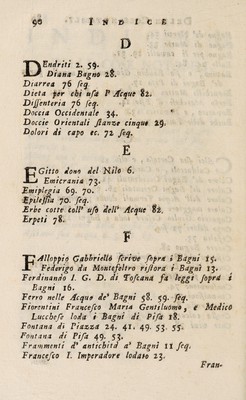 90 INDICE
D
DEndriti 2. 59.
Diana Bagno 28.
Diarrea 76 seq
Dieta per chi usa l' Acque 82.
Dissenteria 76 seq.
Doccia Occidentale 34.
Doccie Orientali stanze cinque 29.
Dolori di capo ec. 72 seq.
E
EGitto dono del Nilo 6.
Emicrania 73.
Emiplegia 69. 70.
Epilessia 70. seq.
Erbe cotte coll' uso dell' Acque 82.
Erpeti 78.
F
FAlloppio Gabbriello scrive sopra i Bagni 15.
Federigo da Montefeltro ristora i Bagni 13.
Ferdinando I. G. D. di Toscana fa leggi sopra i
Bagni 16.
Ferro nelle Acque de' Bagni 58. 59. seq.
Fiorentini Francesco Maria Gentiluomo, e Medico
Lucchese loda i Bagni di Pisa 18.
Fontana di Piazza 24. 41. 49. 53. 55.
Fontana di Pisa 49. 53.
Frammenti d' antichità a' Bagni 11 seq.
Francesco I. Imperadore lodato 23.
Fran-